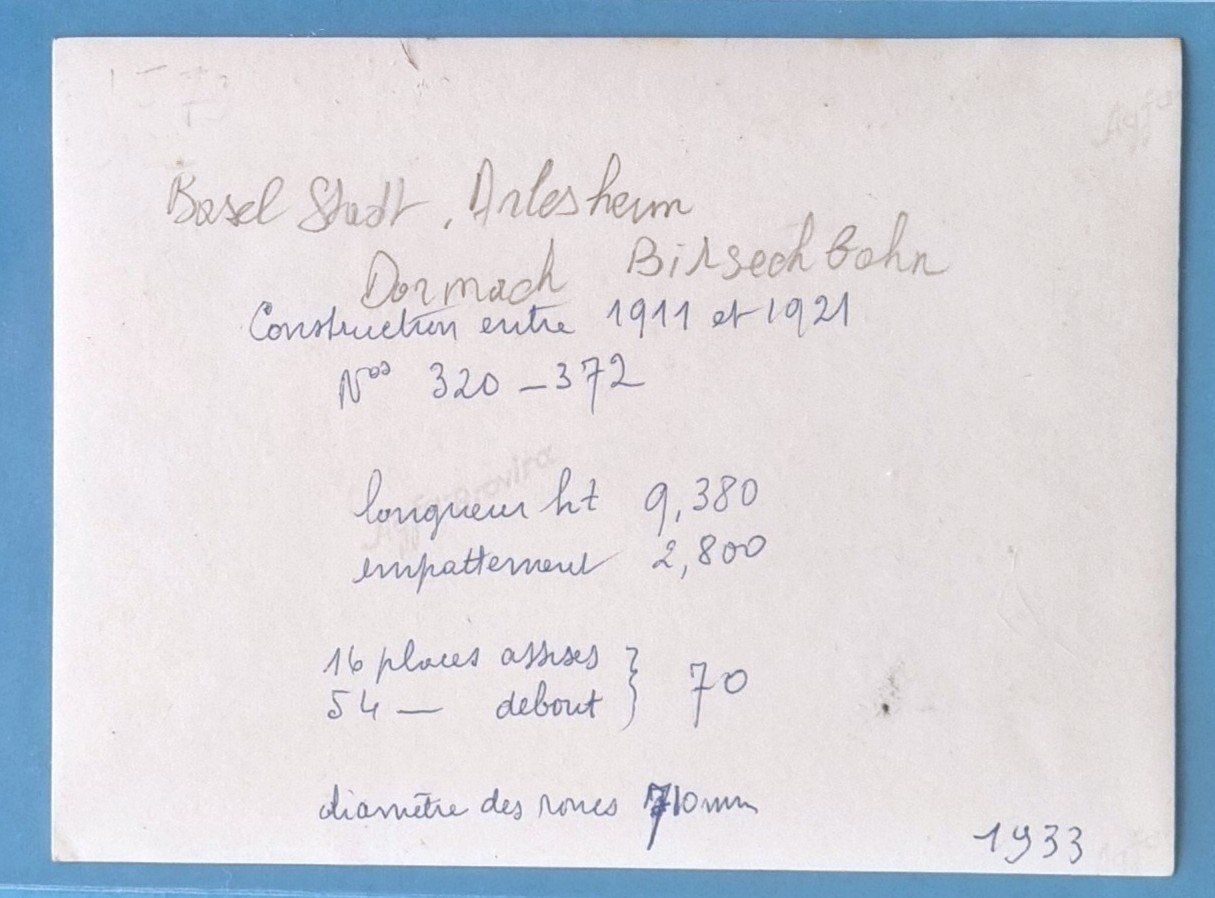 Basel Stadt, Arlesheim
Dormach Birseckbahn
Construction entre 1911 et 1921
Nos 320 - 372
longueur ht 9,380
empattement 2,800
16 places assises } 70
54 — debout
diamètre des roues 710 mm
1933